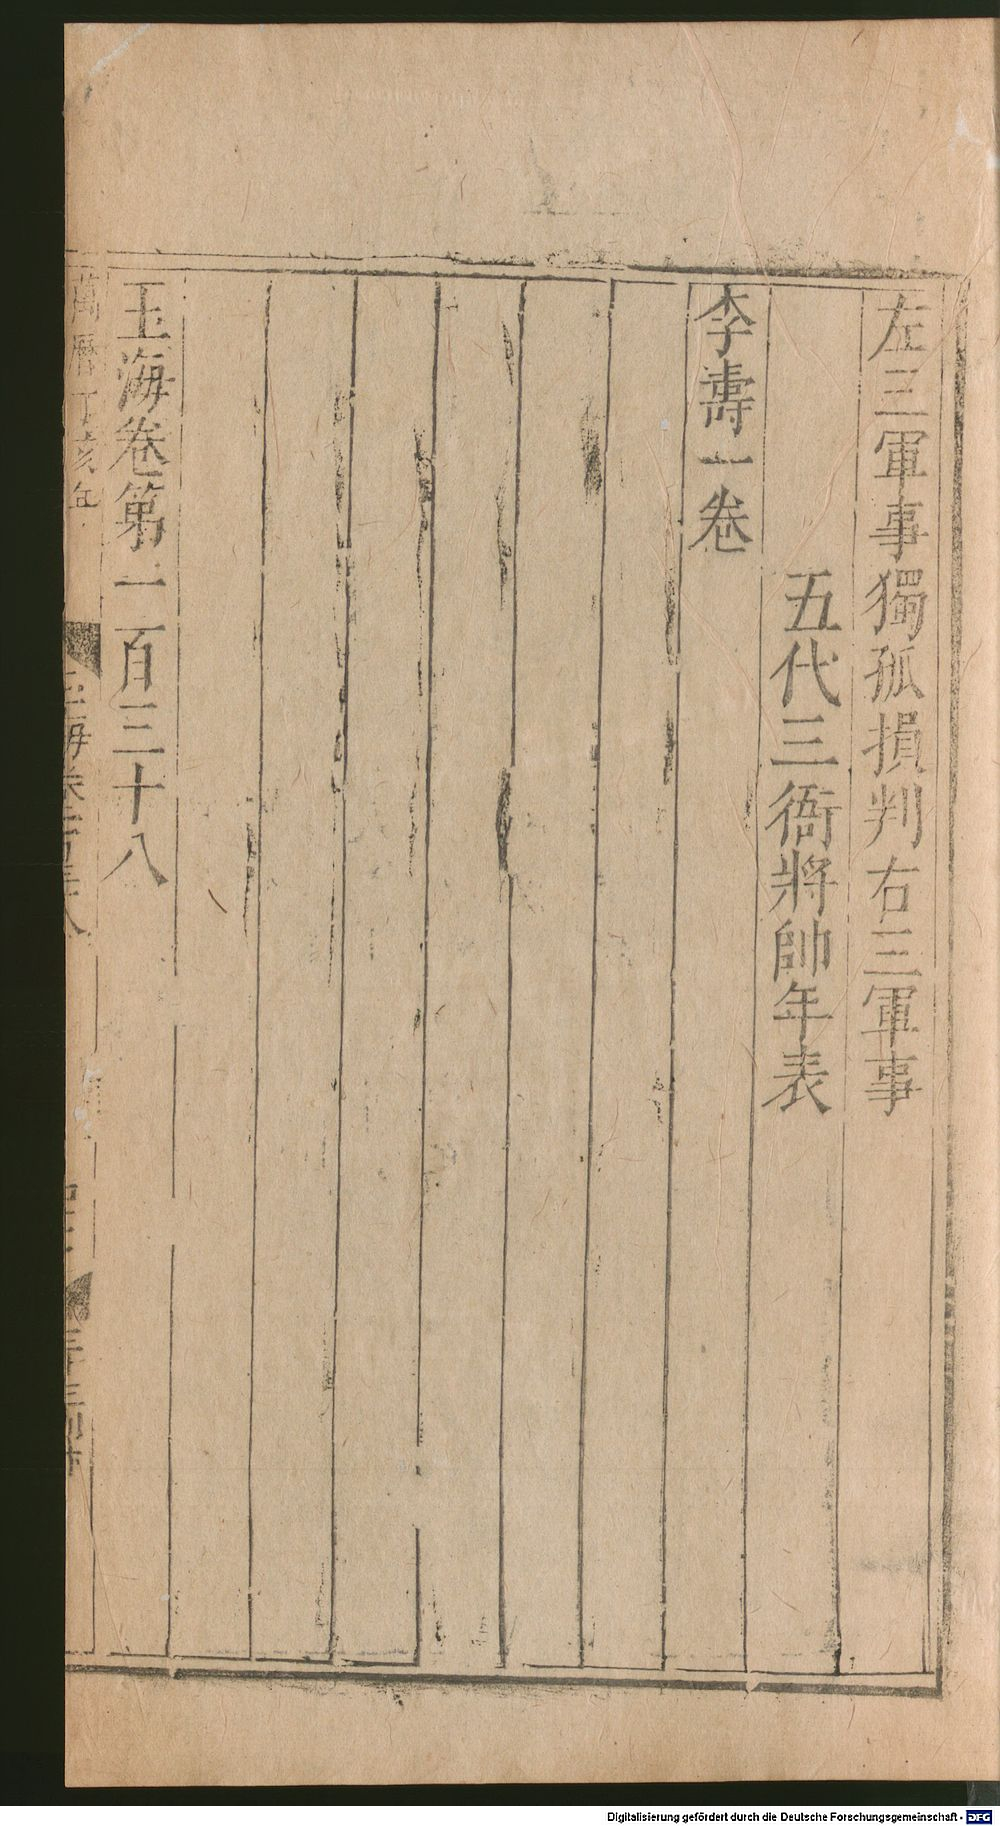 左三軍事獨孤損判右三軍事
五代三衙將帥年表
李壽一卷
玉海卷第一百三十八
萬曆丁亥年
玉海卷一百三十八
Digitalisierung gefördert durch die Deutsche Forschungsgemeinschaft - DFG